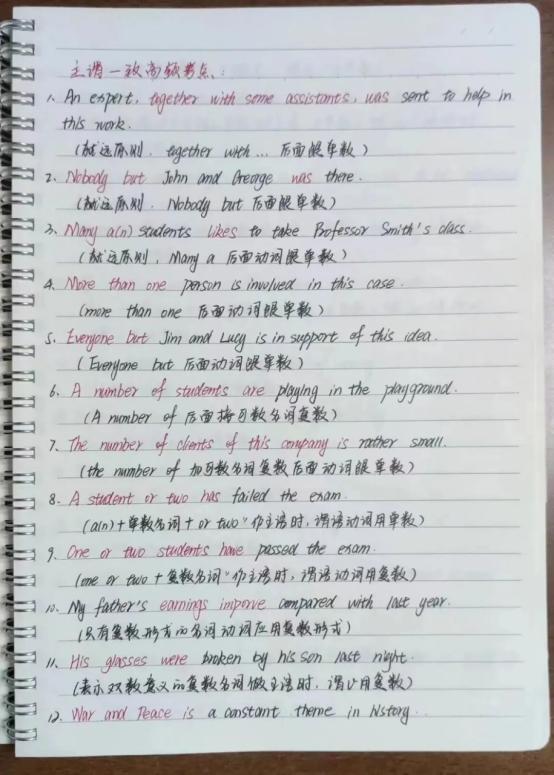 主谓一致高频考点:
1. An expert, together with some assistants, was sent to help in
this work.
(就远原则. together with... 后面跟单数)
2. Nobody but John and Greorge was there.
(就远原则. Nobody but 后面跟单数)
3. Many a(n) students likes to take Professor Smith's class.
(就远原则, Many a 后面动词跟单数)
4. More than one person is involved in this case.
(more than one 后面动词跟单数)
5. Everyone but Jim and Lucy is in support of this idea.
(Everyone but 后面动词跟单数)
6. A number of students are playing in the playground.
(A number of 后面接可数名词复数)
7. The number of clients of this company is rather small.
(the number of 加可数名词复数后面动词跟单数)
8. A student or two has failed the exam.
(a(n)+单数名词+or two"作主语时,谓语动词用单数)
9. One or two students have passed the exam.
(one or two+复数名词"作主语时,谓语动词用复数)
10. My father's earnings imporve compared with last year.
(只有复数形式的名词动词应用复数形式)
11. His glasses were broken by his son last night.
(表示双数意义的复数名词做主语时,谓V用复数)
12. War and Peace is a constant theme in history.